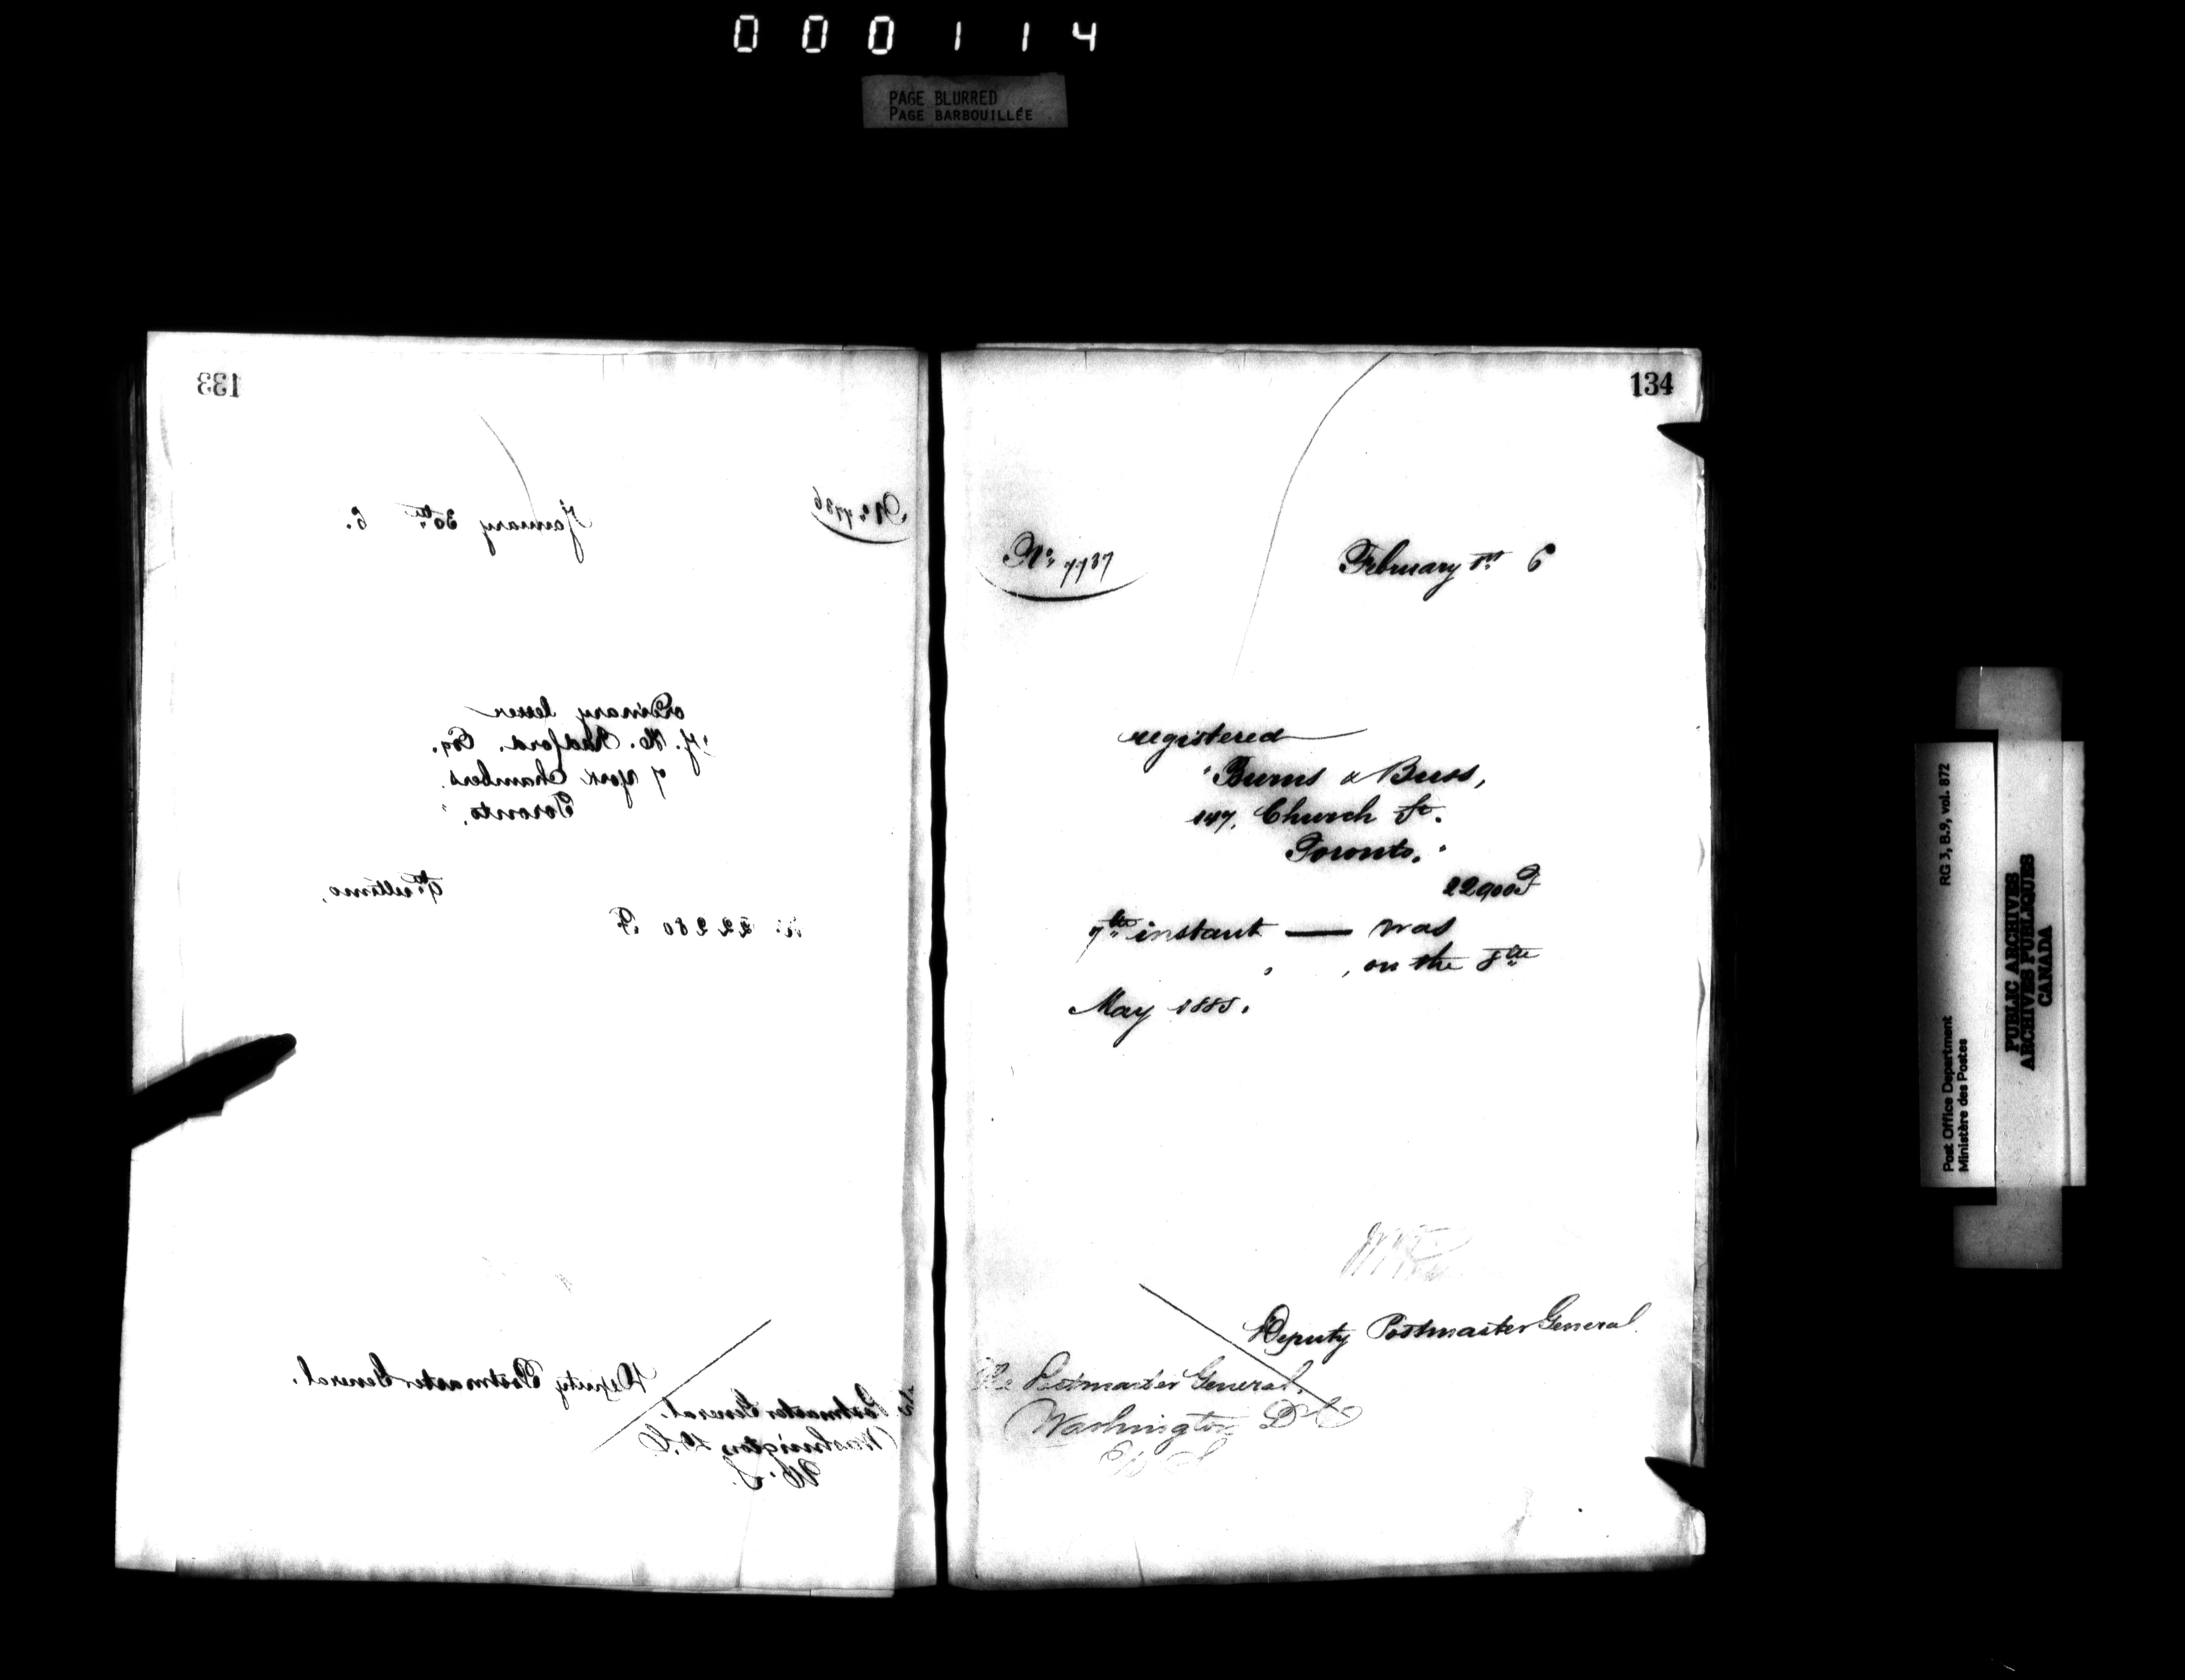 000114
PAGE BLURRED
PAGE BARBOUILLÉE
133
No. 7736
January 30th 6.
ordinary letter
"J. H. Radford. Esq.
7 York Chambers.
Toronto."
9th ultimo.
No. 22280 F
Deputy Postmaster General.
The Postmaster General.
Washington D.C.
U.S.
134
No. 7737
February 1st 6
registered
"Burns & Buss,
147, Church St.
Toronto."
22900 F
7th instant — was
, on the 8th
May 1885.
Deputy Postmaster General.
The Postmaster General,
Washington D C
U S
RG 3, B.9, vol. 872
Post Office Department
Ministère des Postes
PUBLIC ARCHIVES
ARCHIVES PUBLIQUES
CANADA